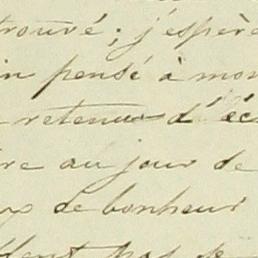 trouvé; j'espère
in pensé à mon
retenue d'éc
re au jour de
de bonheur
pas de